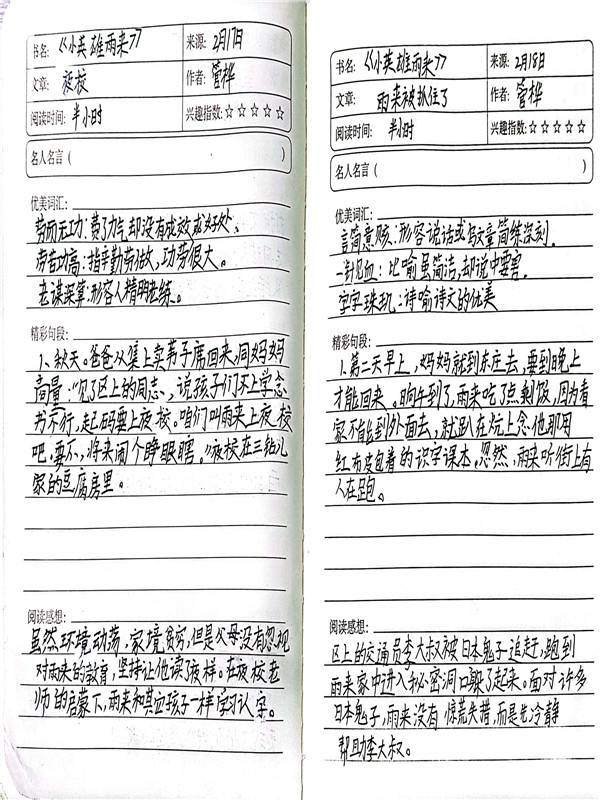 书名:《小英雄雨来》 来源: 2月17日
文章: 夜校 作者: 管桦
阅读时间: 半小时 兴趣指数:☆☆☆☆☆
名人名言 ( )
优美词汇:
劳而无功:费了力气却没有成效或好处、
劳苦功高:指辛勤劳做,功劳很大。
老谋深算:形容人精明老练。
精彩句段:
1、秋天。爸爸从集上卖苇子席回来,同妈妈
商量:“见了区上的同志、说孩子们不上学念
书不行,起码要上夜校。咱们叫雨来上夜校
吧。要不、将来闹个睁眼瞎。”夜校在三钻儿
家的豆腐房里。
阅读感想:
虽然环境动荡,家境贫穷,但是父母没有忽视
对雨来的教育,坚持让他读夜样。在夜校老
师的启蒙下,雨来和其他孩子一样学习认字。
书名:《小英雄雨来》 来源: 2月18日
文章: 雨来被抓住了 作者: 管桦
阅读时间: 半小时 兴趣指数:☆☆☆☆☆
名人名言 ( )
优美词汇:
言简意赅:形容说话或写文章简练深刻.
一针见血:比喻虽简洁,却说中要害.
字字珠玑:诗喻诗文的优美
精彩句段:
1.第二天早上,妈妈就到东庄去,要到晚上
才能回来。晌午到了,雨来吃了点剩饭,因为看
家不能到外面去、就趴在炕上念他那用
红布皮包着的识字课本。忽然,雨来听街上有
人在跑。
阅读感想:
区上的交通员李大叔被日本鬼子追赶,跑到
雨来家中进入秘密洞口躲了起来。面对许多
日本鬼子,雨来没有惊荒失措,而是先冷静
帮助李大叔。